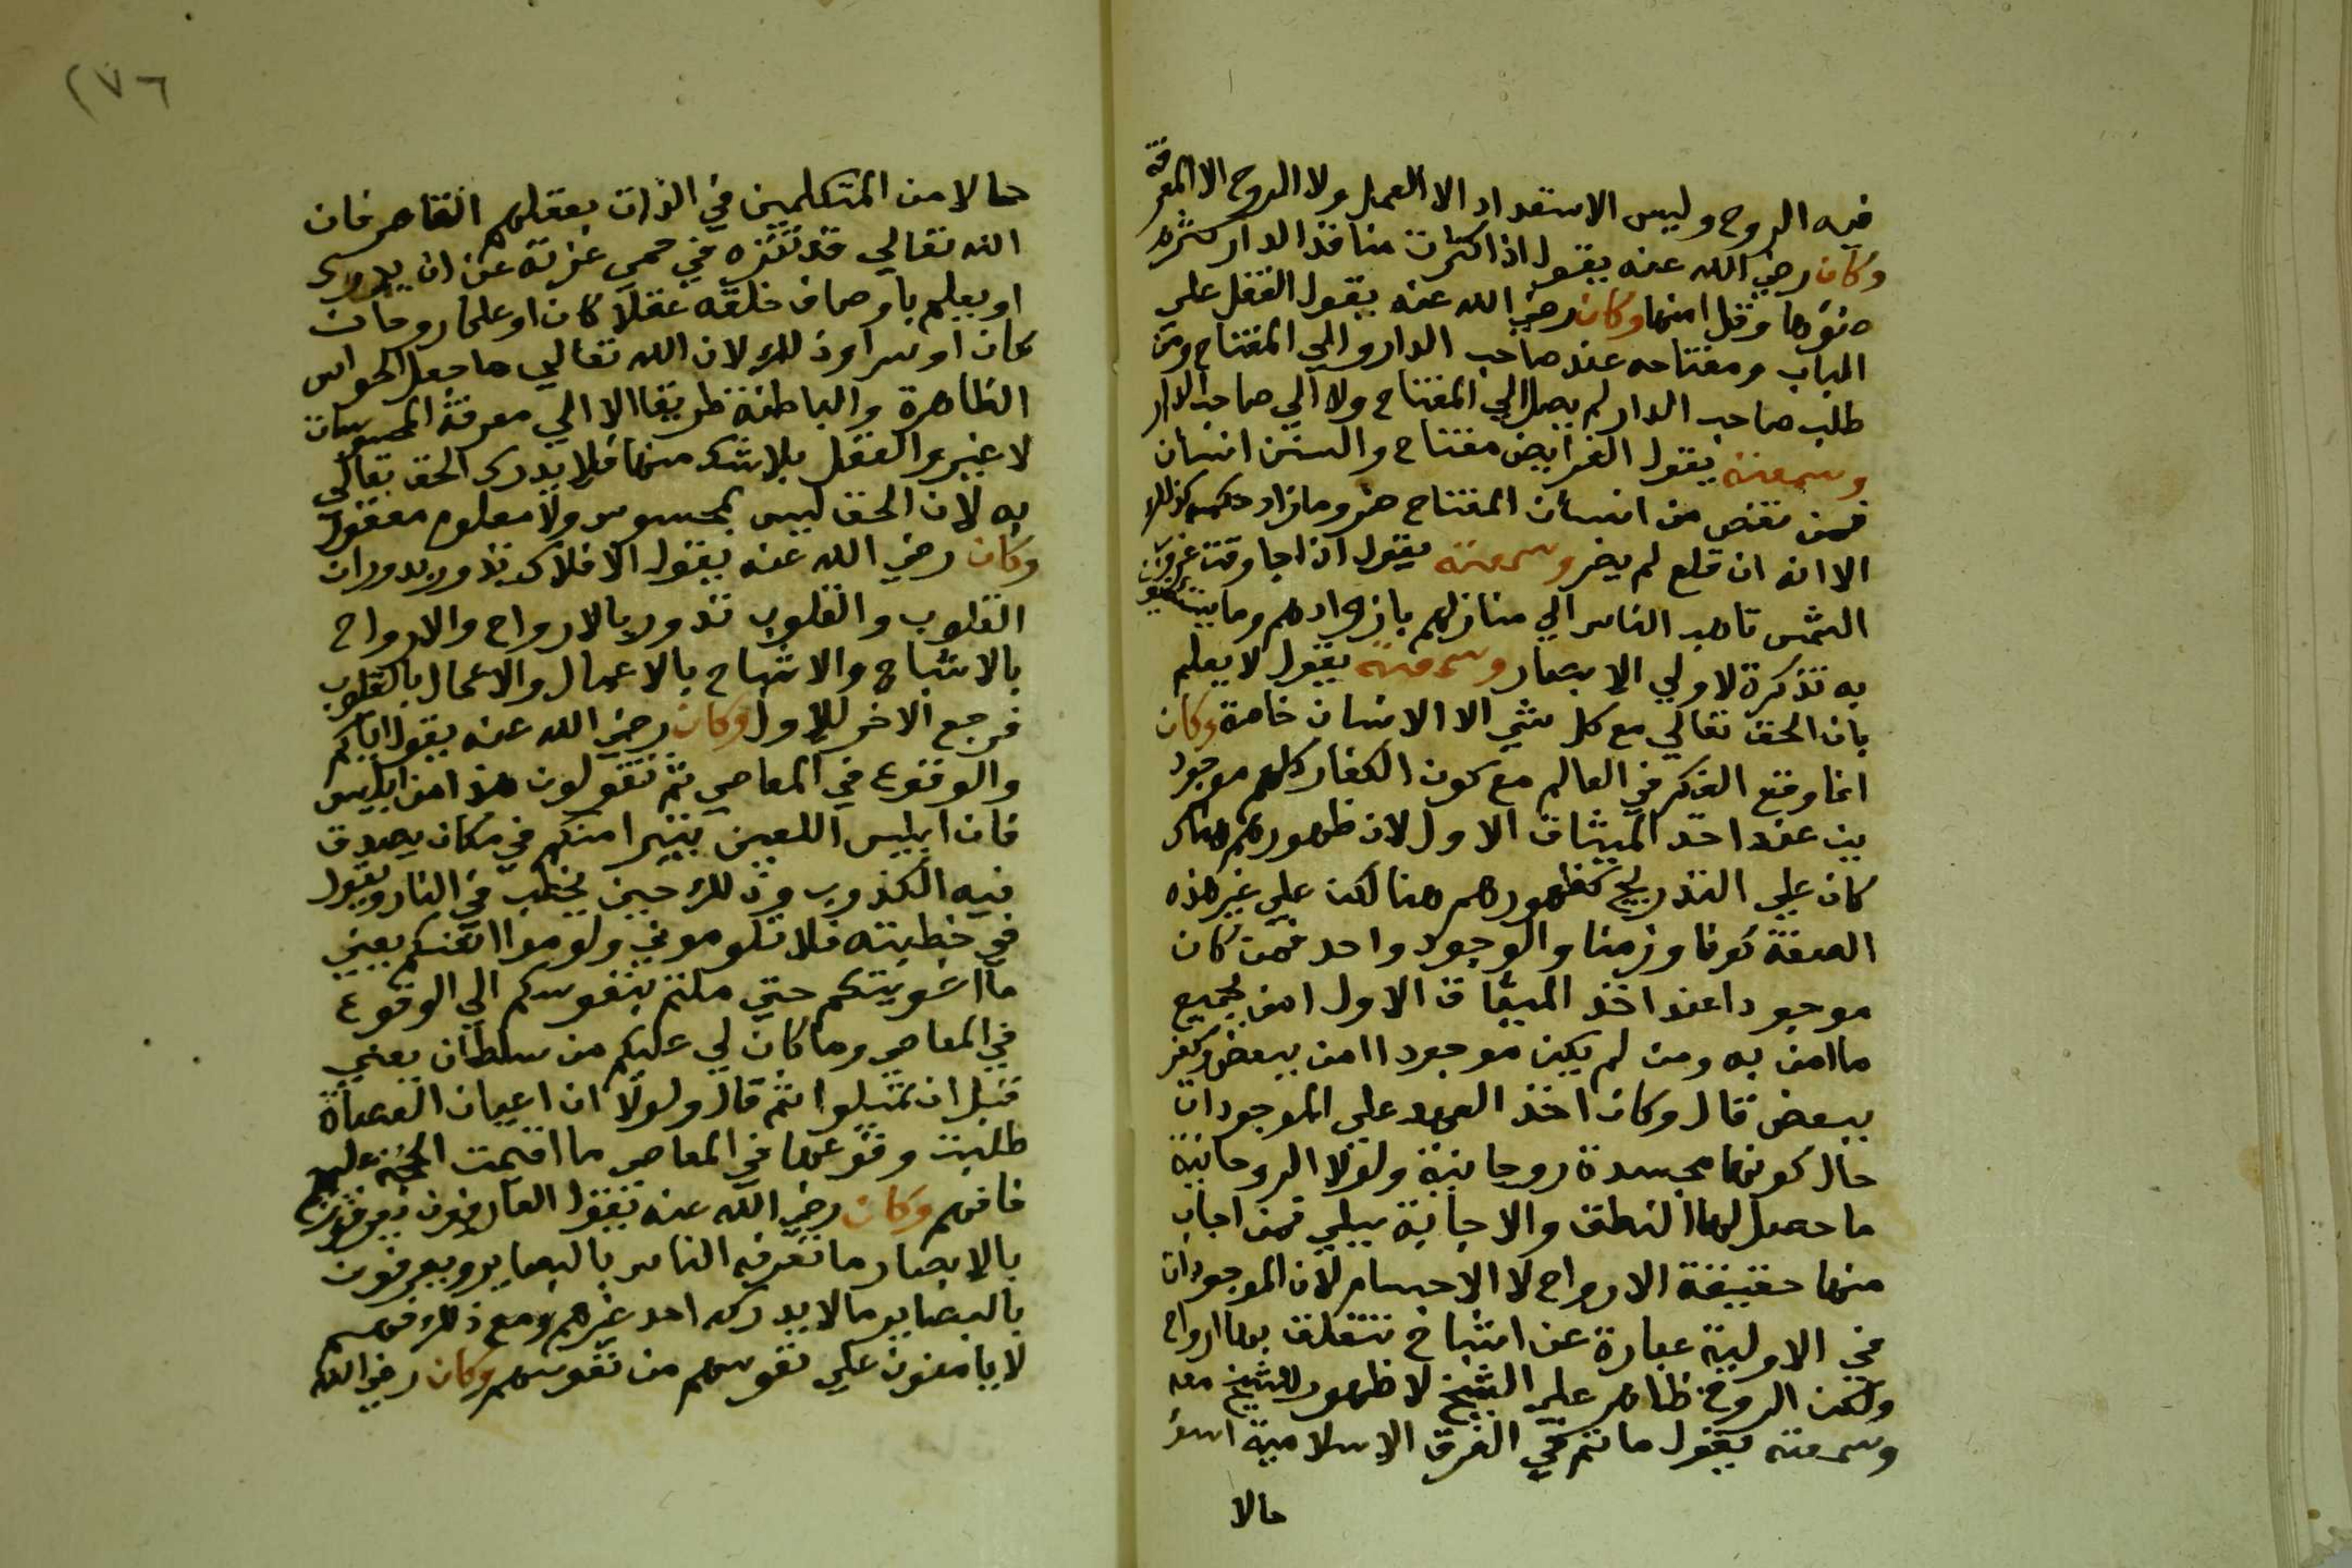 فيه الروح وليس الاستعداد الا العمل ولا الروح الا المعرفة
وكان رضي الله عنه يقول اذا كثرت منافذ الدار كثر
ضؤها وقل امنها وكان رضي الله عنه يقول القفل على
الباب ومفتاحه عند صاحب الدار والي المفتاح ومن
طلب صاحب الدار لم يصل الي المفتاح ولا الي صاحب الدار
وسمعته يقول الفرايض مفتاح والسنن اسنان
فمن نقص من اسنان المفتاح ضر وما زاد حكمه كذلك
الا انه ان قلع لم يضر وسمعته يقول اذا جا وقت غروب
الشمس تاهب الناس الي منازلهم بازوادهم وما
به تذكرة لاولي الابصار وسمعته يقول لا يعلم
بان الحق تعالي مع كل شي الا الانسان خاصة وكان
انما وقع الفكر في العالم مع كون الكفار كلهم موجود
ين عند اخذ الميثاق الاول لان ظهورهم هناك
كان علي التدريج كظهورهم هنا لكن علي غير هذه
الصفة كونا وزمنا والوجود واحد فمن كان
موجودا عند اخذ الميثاق الاول امن بجميع
ما امن به ومن لم يكن موجودا امن ببعض وكفر
ببعض قال وكان اخذ العهد علي الموجودات
حال كونها مجسدة روحانية ولولا الروحانية
ما حصل لها النطق والاجابة ببلي فمن اجاب
منها حقيقة الارواح لا الاجسام لان الموجودات
في الاولية عبارة عن اشباح تتعلق بها ارواح
ولكن الروح ظاهر علي الشبح لا ظهور للشبح معه
وسمعته يقول ما ثم في الفرق الاسلامية اسوا
حالا
٢٧٦
حالا من المتكلمين في الذات بعقلهم القاصر فان
الله تعالي قد تنزه في حمي عزته عن ان يدرك
او يعلم باوصاف خلقه عقلا كان او علما روحا
كان او سرا وذلك لان الله تعالي ما جعل الحواس
الظاهرة والباطنة طريقا الا الي معرفة المحسوسات
لا غير والعقل بلا شك منها فلا يدرك الحق تعالي
به لان الحق ليس بمحسوس ولا معلوم معقول
وكان رضي الله عنه يقول الافلاك تدور بدوران
القلوب والقلوب تدور بالارواح والارواح
بالاشباح والاشباح بالاعمال والاعمال بالقلوب
فرجع الاخر للاول وكان رضي الله عنه يقول اياكم
والوقوع في المعاصي ثم تقولون هذا من ابليس
فان ابليس اللعين يتبرا منكم في مكان يصدق
فيه الكذوب وذلك حين يخطب في النار ويقول
في خطبته فلا تلوموني ولوموا انفسكم يعني
ما اغويتكم حتي ملتم بنفوسكم الي الوقوع
في المعاصي وما كان لي عليكم من سلطان يعني
قبل ان تميلوا ثم قال ولولا ان اعيان العصاة
طلبت وقوعها في المعاصي ما اقيمت الحجة عليهم
فافهم وكان رضي الله عنه يقول العارفون يعرفون
بالابصار ما تعرفه الناس بالبصاير ويعرفون
بالبصاير ما لا يدركه احد غيرهم ومع ذلك فهم
لا يامنون علي نفوسهم من نفوسهم وكان رضي الله